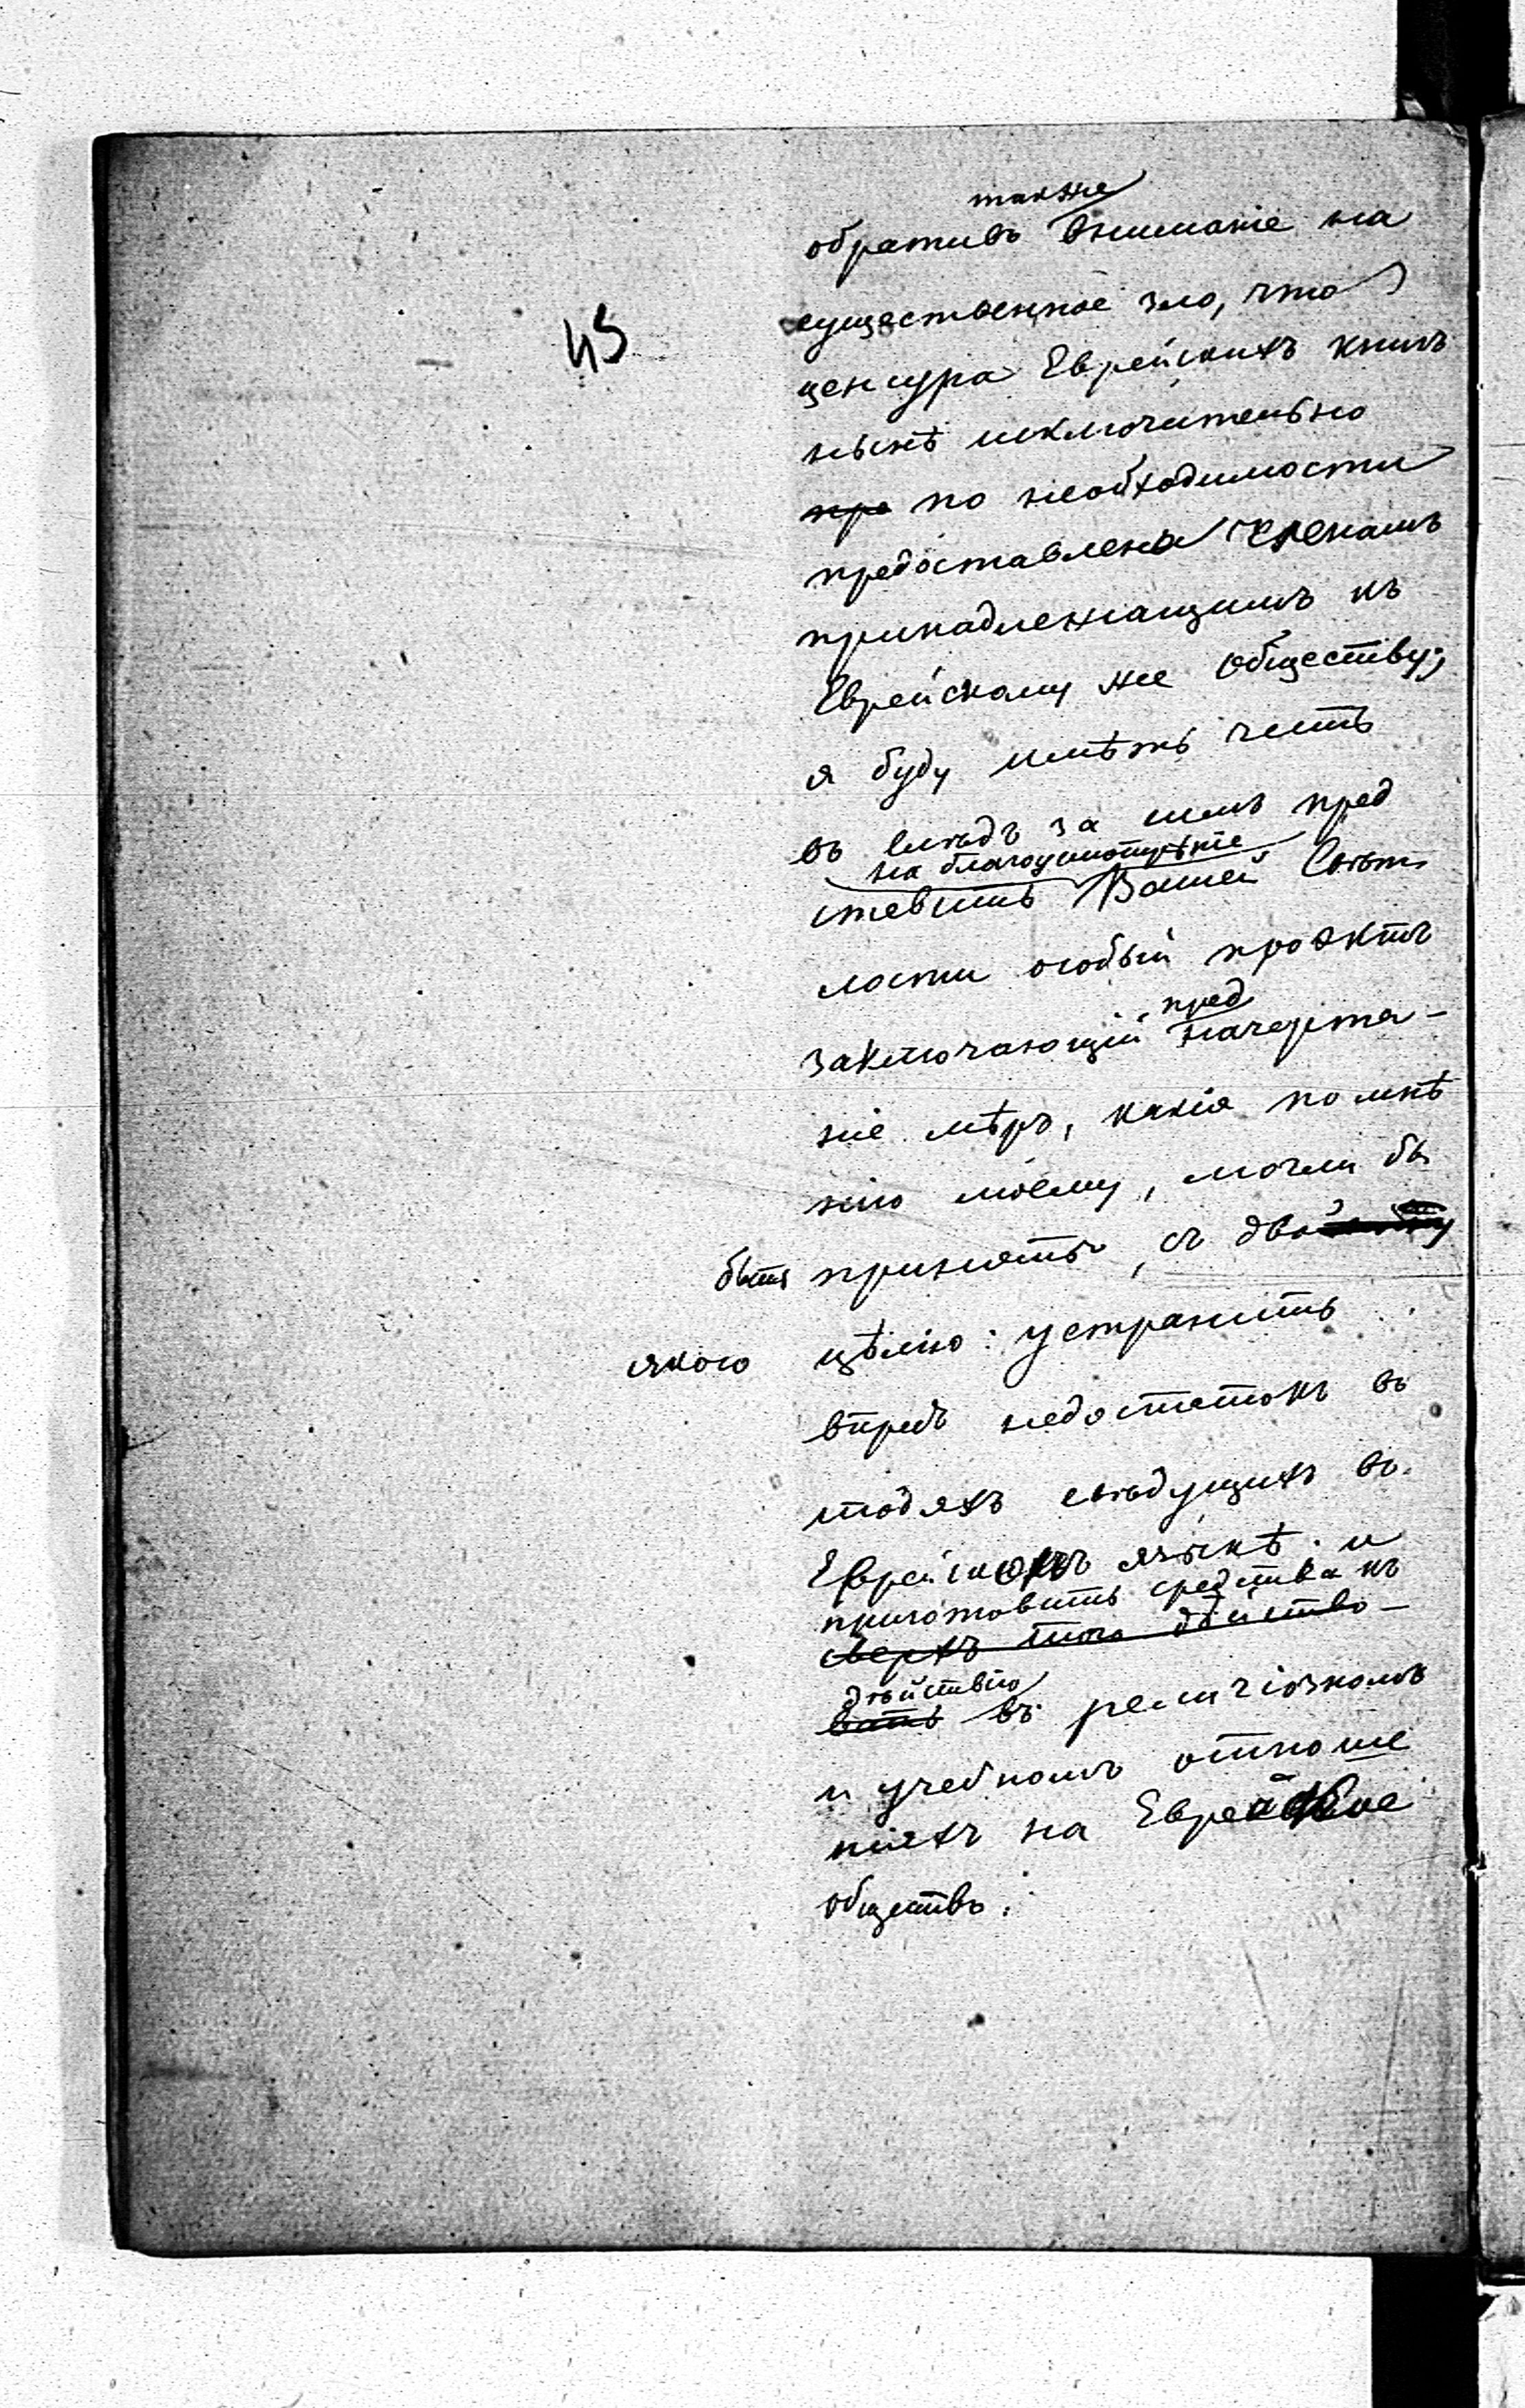 также
обративъ вниманіе на
45
существенное зло, что
ценсура Еврейскихъ книгъ
нынѣ исключительно
пре по необходимости
предоставлена членамъ
принадлежащимъ къ
Еврейскому же обществу;
я буду имѣть честь
въ слѣдъ за симъ пред
на благоусмотрѣніе
ставить Вашей Свѣт
лости особый проэктъ
пред
заключающій начерта-
ніе мѣръ, какія по мнѣ
нію моему, могли бы
быть принять, съ дво
якого цѣлію: устранить
впредь недостатокъ въ
людяхъ свѣдущихъ въ
Еврейскомъ языкѣ и
приготовить средства къ
сверхъ того дѣйство-
дѣйствію
вать въ религіозномъ
и учебномъ отноше
ніяхъ на Еврейское
общество.